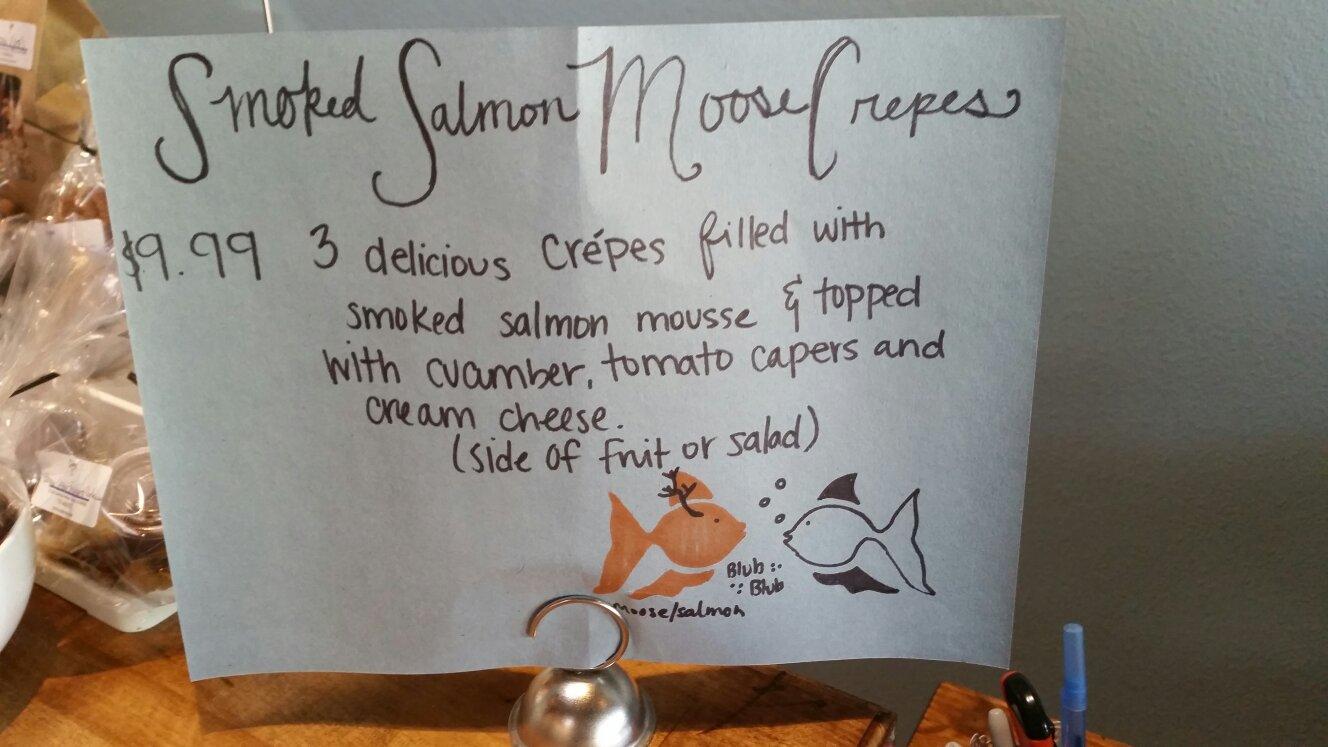 Smoked Salmon Moose Crepes
$9.99 3 delicious Crépes filled with
smoked salmon mousse & topped
with cucumber, tomato capers and
cream cheese.
(side of fruit or salad)
Blub
Blub
moose/salmon